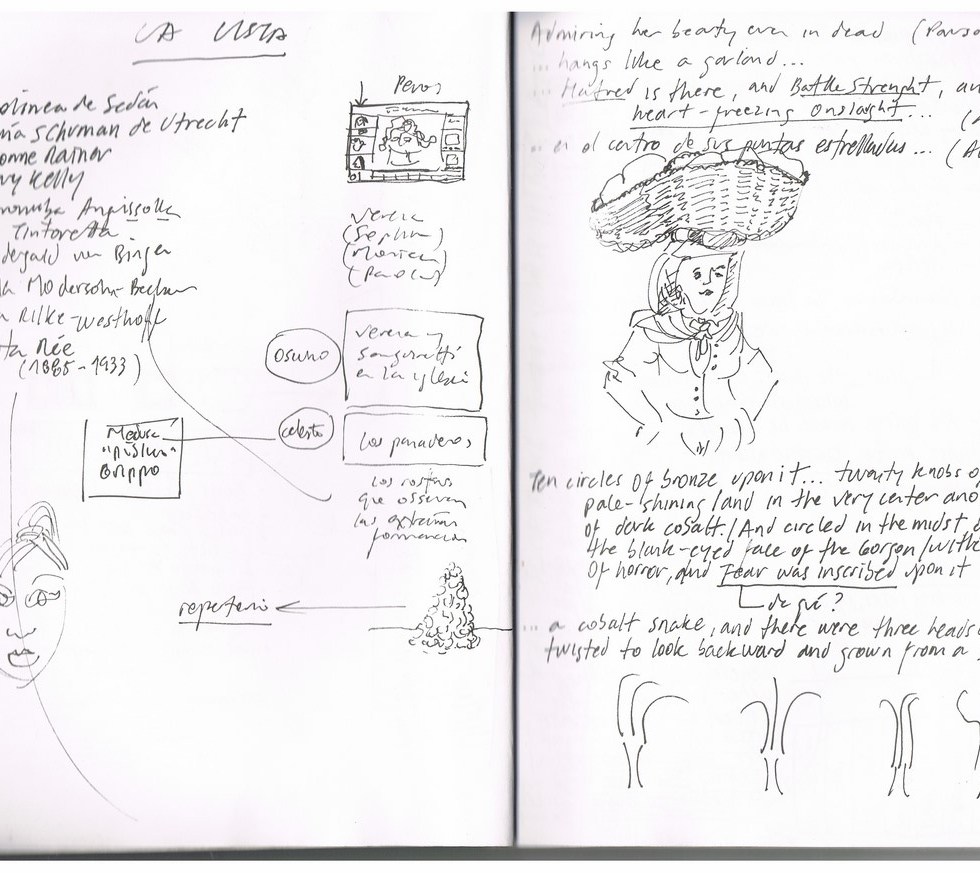 LA VISTA
olinea de Sedán
nía Schuman de Utrecht
onne Rainer
ry Kelly
onisba Anguissolla
Tintoretta
degald von Bingen
la Modersohn-Becker
a Rilke-Westhoff
ta Née
(1885-1933)
Medusa
Grippo
Peros
osuno
en la iglesia
celeste
Los panaderos
Los rostros
que observan
las extrañas
formaciones
repertorio
Admiring her beauty even in dead (Pausa
... hangs like a garland...
... Hatred is there, and Battle Strenght, an
heart-freezing Onslaught...
... en el centro de sus puntas estrelladas ...
Ten circles of bronze upon it... twenty knobs o
pale-shining/and in the very center ano
of dark cobalt./And circled in the midst
the blank-eyed face of the Gorgon/with
of horror, and Fear was inscribed upon it
de qué?
... a cobalt snake, and there were three heads
twisted to look backward and grown from a